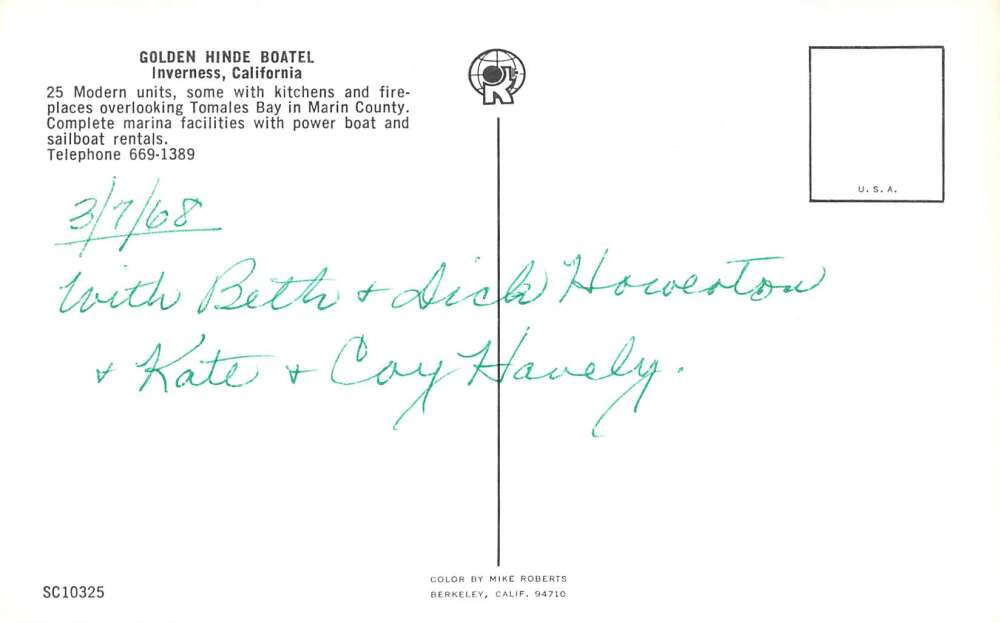 GOLDEN HINDE BOATEL
Inverness, California
25 Modern units, some with kitchens and fire-
places overlooking Tomales Bay in Marin County.
Complete marina facilities with power boat and
sailboat rentals.
Telephone 669-1389
R
U. S. A.
3/7/68
With Beth + Dick Howerton
+ Kate + Coy Havely.
SC10325
COLOR BY MIKE ROBERTS
BERKELEY, CALIF. 94710